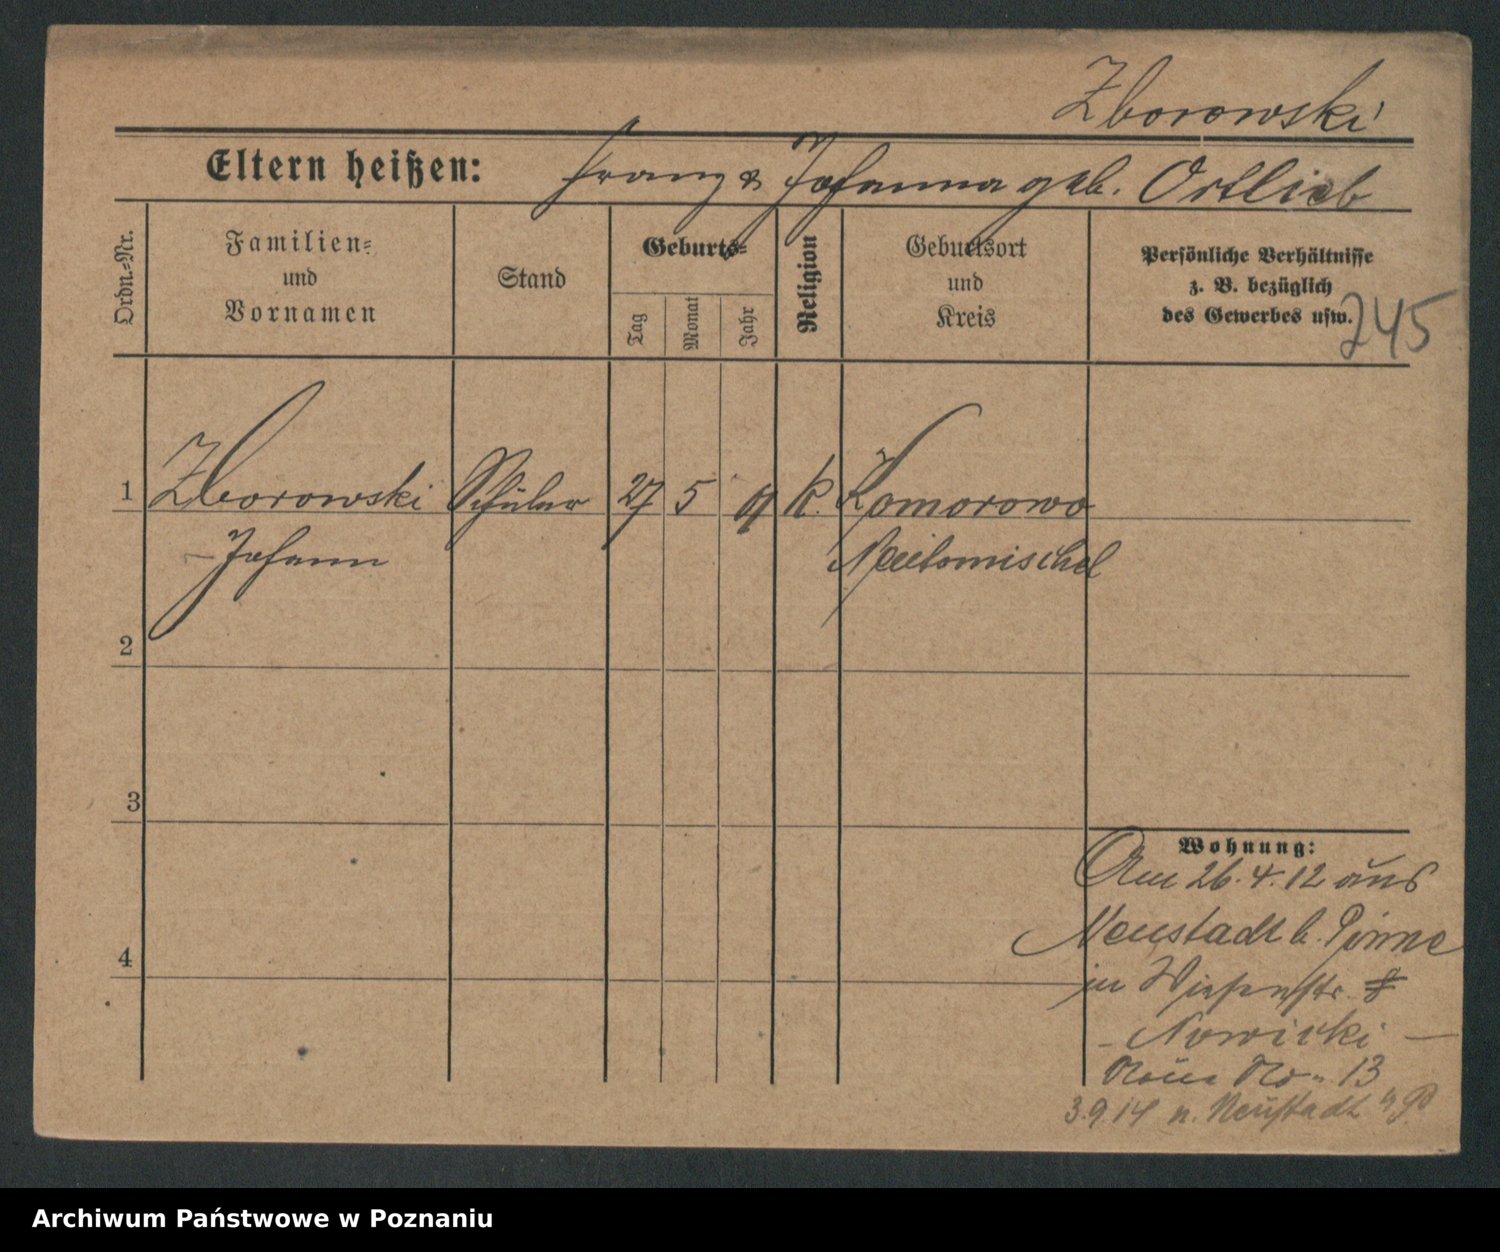 Zborowski
Eltern heißen: Franz & Johanna geb. Ortlieb
Ordn.-Nr.
Familien-
und
Vornamen
Stand
Geburts-
Tag
Monat
Jahr
Religion
Geburtsort
und
Kreis
Persönliche Verhältnisse
z. B. bezüglich
des Gewerbes usw.
245
1 Zborowski Schüler 27 5 k. Komorowo
Johann Neutomischel
2
3
4
Wohnung:
Am 26.4.12 aus
Neustadt b. Pinne
in Wiesenstr. 8
- Nowicki -
Neue No. 13
3.9.14 n. Neustadt
Archiwum Państwowe w Poznaniu